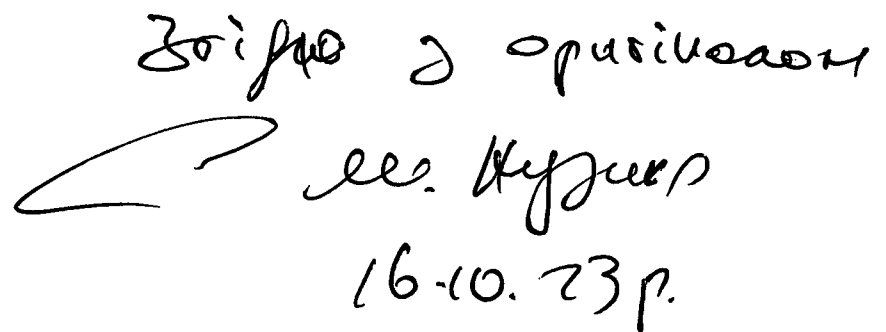 Згідно з оригіналом
М.
16.10.23 р.